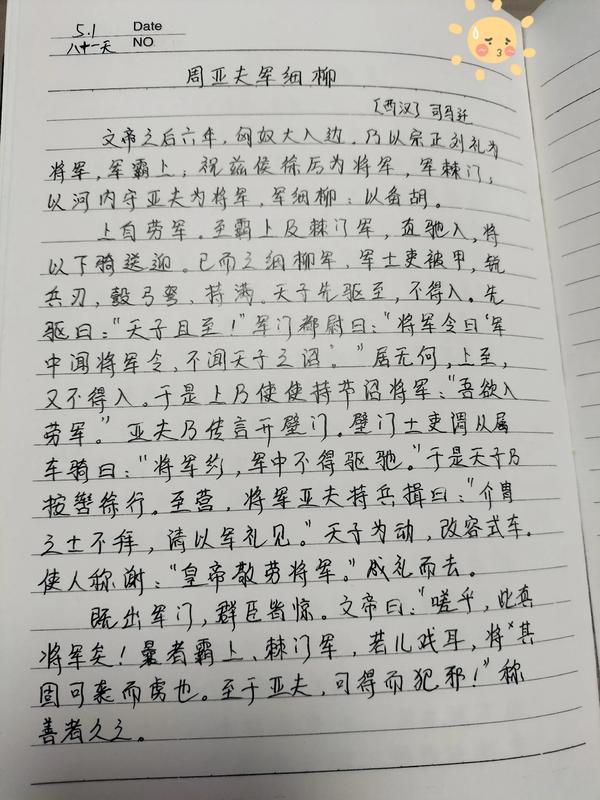 5.1 Date
八十一天 NO.
周亚夫军细柳
〔西汉〕司马迁
文帝之后六年,匈奴大入边。乃以宗正刘礼为
将军,军霸上;祝兹侯徐厉为将军,军棘门;
以河内守亚夫为将军,军细柳:以备胡。
上自劳军。至霸上及棘门军,直驰入,将
以下骑送迎。已而之细柳军,军士吏被甲,锐
兵刃,彀弓弩,持满。天子先驱至,不得入。先
驱曰:“天子且至!”军门都尉曰:“将军令曰‘军
中闻将军令,不闻天子之诏’。”居无何,上至,
又不得入。于是上乃使使持节诏将军:“吾欲入
劳军。”亚夫乃传言开壁门。壁门士吏谓从属
车骑曰:“将军约,军中不得驱驰。”于是天子乃
按辔徐行。至营,将军亚夫持兵揖曰:“介胄
之士不拜,请以军礼见。”天子为动,改容式车。
使人称谢:“皇帝敬劳将军。”成礼而去。
既出军门,群臣皆惊。文帝曰:“嗟乎,此真
将军矣!曩者霸上、棘门军,若儿戏耳,将其
固可袭而虏也。至于亚夫,可得而犯邪!”称
善者久之。